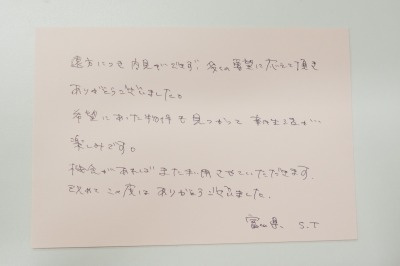 遠方につき内見ができず、多くの要望に応えて頂き
ありがとうございました。
希望にあった物件も見つかって 新生活が
楽しみです。
機会があればまた利用させていただきます。
改めて この度は ありがとうございました。
富山県 S.T